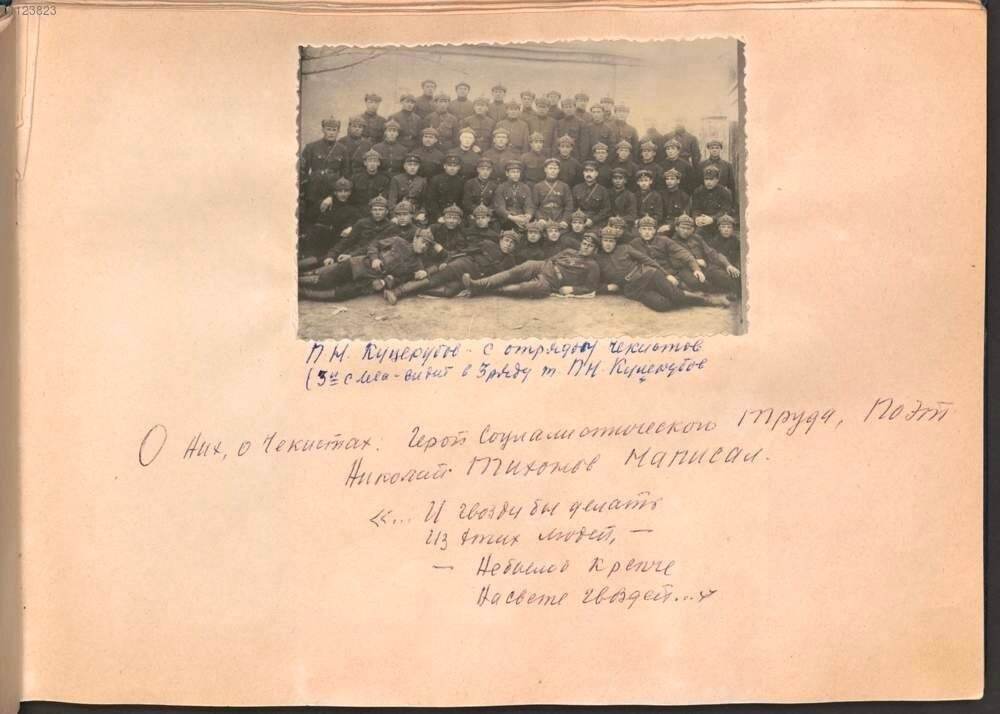 123823
П.Н. Куцекубов - с отрядом Чекистов
(3й слева - сидит в 3 ряду т. П.Н. Куцекубов
О них, о Чекистах: Герой Социалистического Труда, Поэт
Николай Тихонов написал.
«... И гвозди бы делать
Из этих людей, —
— Небыло крепче
На свете гвоздей...»